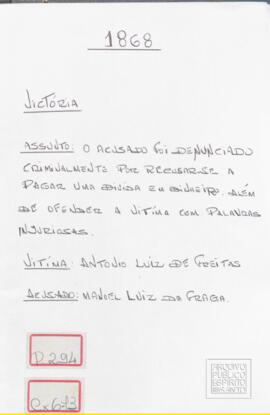 1868
VICTÓRIA
ASSUNTO: O ACUSADO FOI DENUNCIADO
CRIMINALMENTE POR RECUSAR-SE A
PAGAR UMA DIVIDA EM DINHEIRO, ALÉM
DE OFENDER A VITIMA COM PALAVRAS
INJURIOSAS.
VITIMA: ANTONIO LUIZ DE FREITAS
ACUSADO: MANOEL LUIZ DA FRAGA.
D.294
Cx 673
ARQUIVO
PÚBLICO
ESPÍRITO
SANTO